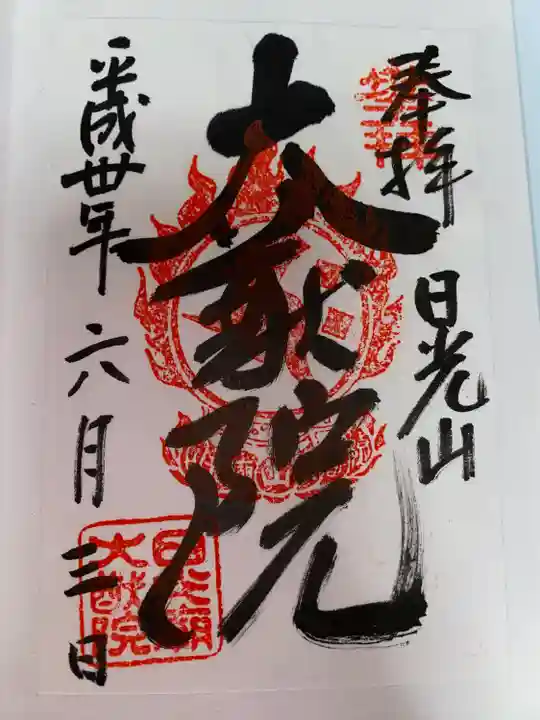 奉拝
日光山
大猷院
平成卅年六月三日
大猷院